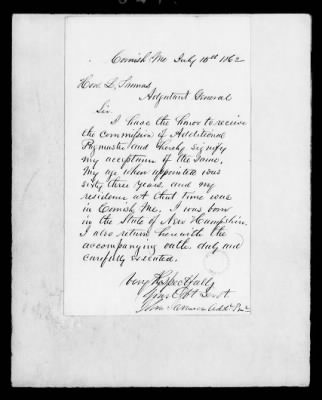 Cornish Me July 10th 1862
Hon L. Thomas
Adjutant General
Sir
I have the honor to receive
the commission of Additional
Paymaster and hereby signify
my acceptance of the same.
My age when appointed was
sixty three years and my
residence at that time was
in Cornish Me. I was born
in the State of New Hampshire.
I also return herewith the
accompanying oath duly and
carefully executed.
Very Respectfully
Your Obt Servt
John Addl P